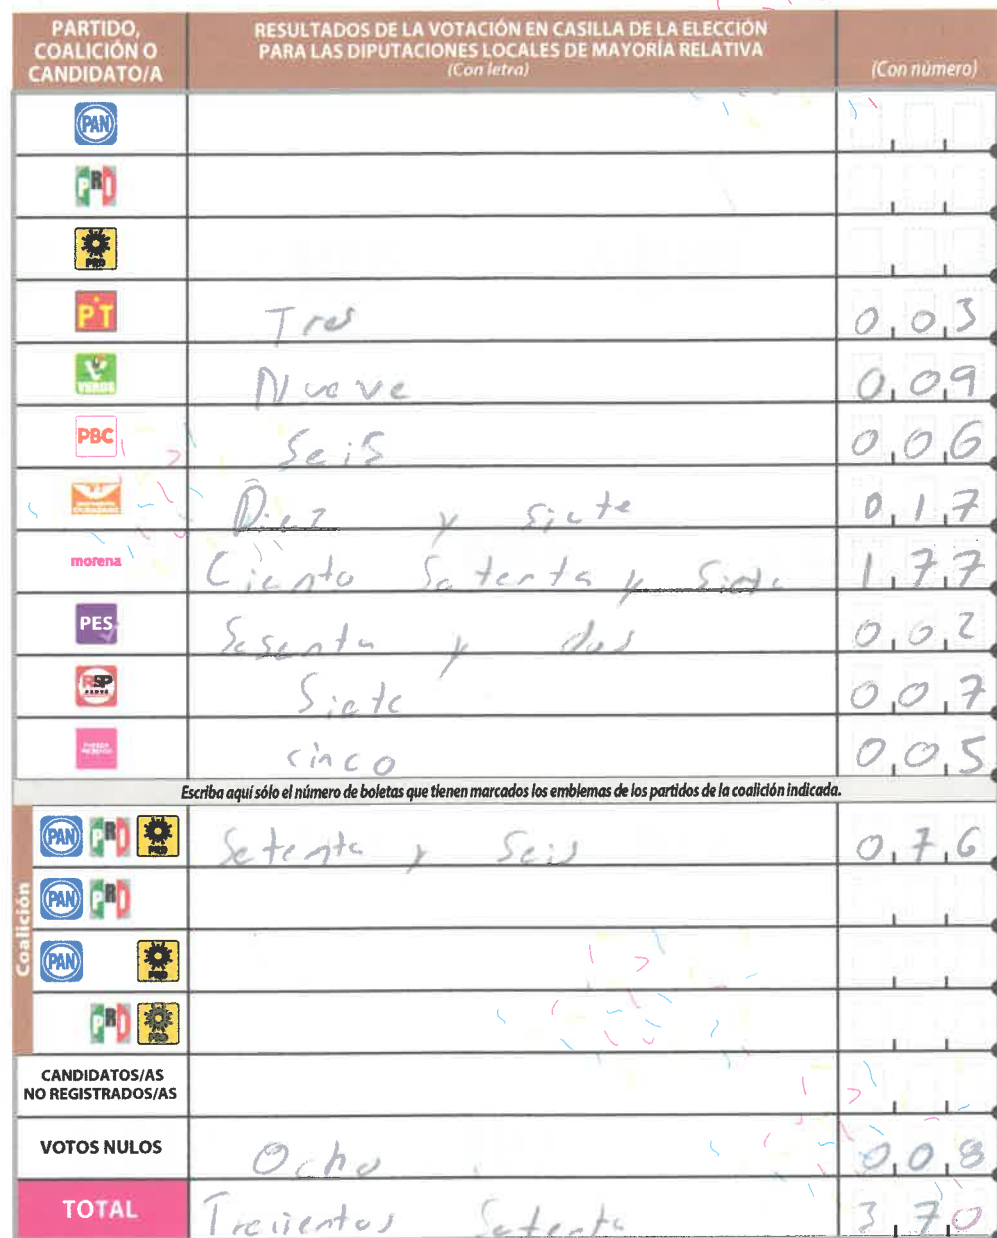 PARTIDO, COALICIÓN O CANDIDATO/A
RESULTADOS DE LA VOTACIÓN EN CASILLA DE LA ELECCIÓN PARA LAS DIPUTACIONES LOCALES DE MAYORÍA RELATIVA
(Con letra)
(Con número)
PAN
PRI
PRD
PT Tres 0 0 3
VERDE Nueve 0 0 9
PBC Seis 0 0 6
CIUDADANO Diez y siete 0 1 7
morena Ciento Setenta y Siete 1 7 7
PES Sesenta y dos 0 0 2
RSP Siete 0 0 7
cinco 0 0 5
Escriba aquí sólo el número de boletas que tienen marcados los emblemas de los partidos de la coalición indicada.
Coalición
PAN PRI PRD Setenta y Seis 0 7 6
PAN PRI
PAN PRD
PRI PRD
CANDIDATOS/AS NO REGISTRADOS/AS
VOTOS NULOS Ocho 0 0 8
TOTAL Trecientos Setenta 3 7 0